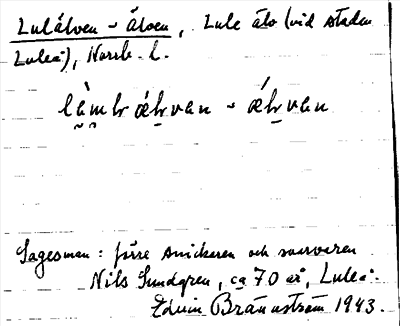 Lulälven ~ Älven, Lule älv (vid staden
Luleå), Norrb. l.
älvan
Sagesman: förre snickaren och svarvaren
Nils Sundgren, ca 70 år, Luleå.
Edvin Brännström 1943.